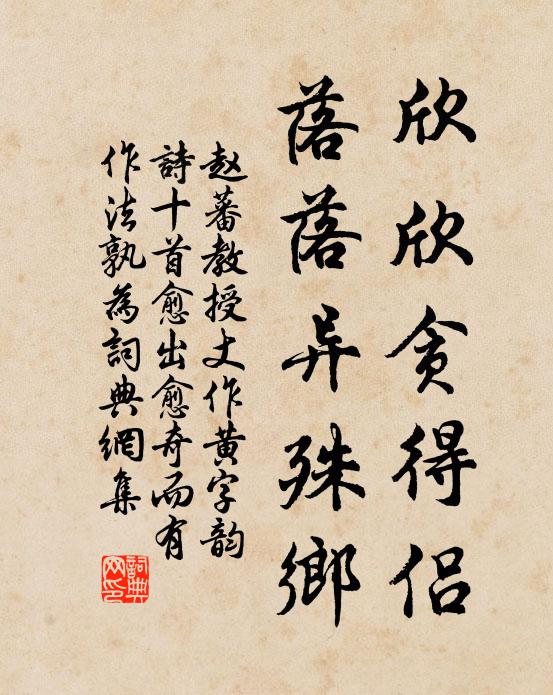 欣欣贪得侣
落落异殊鄉
赵蕃教授丈作黄字韵
詩十首愈出愈奇而有
作法孰為詞典網集
詞典
网印